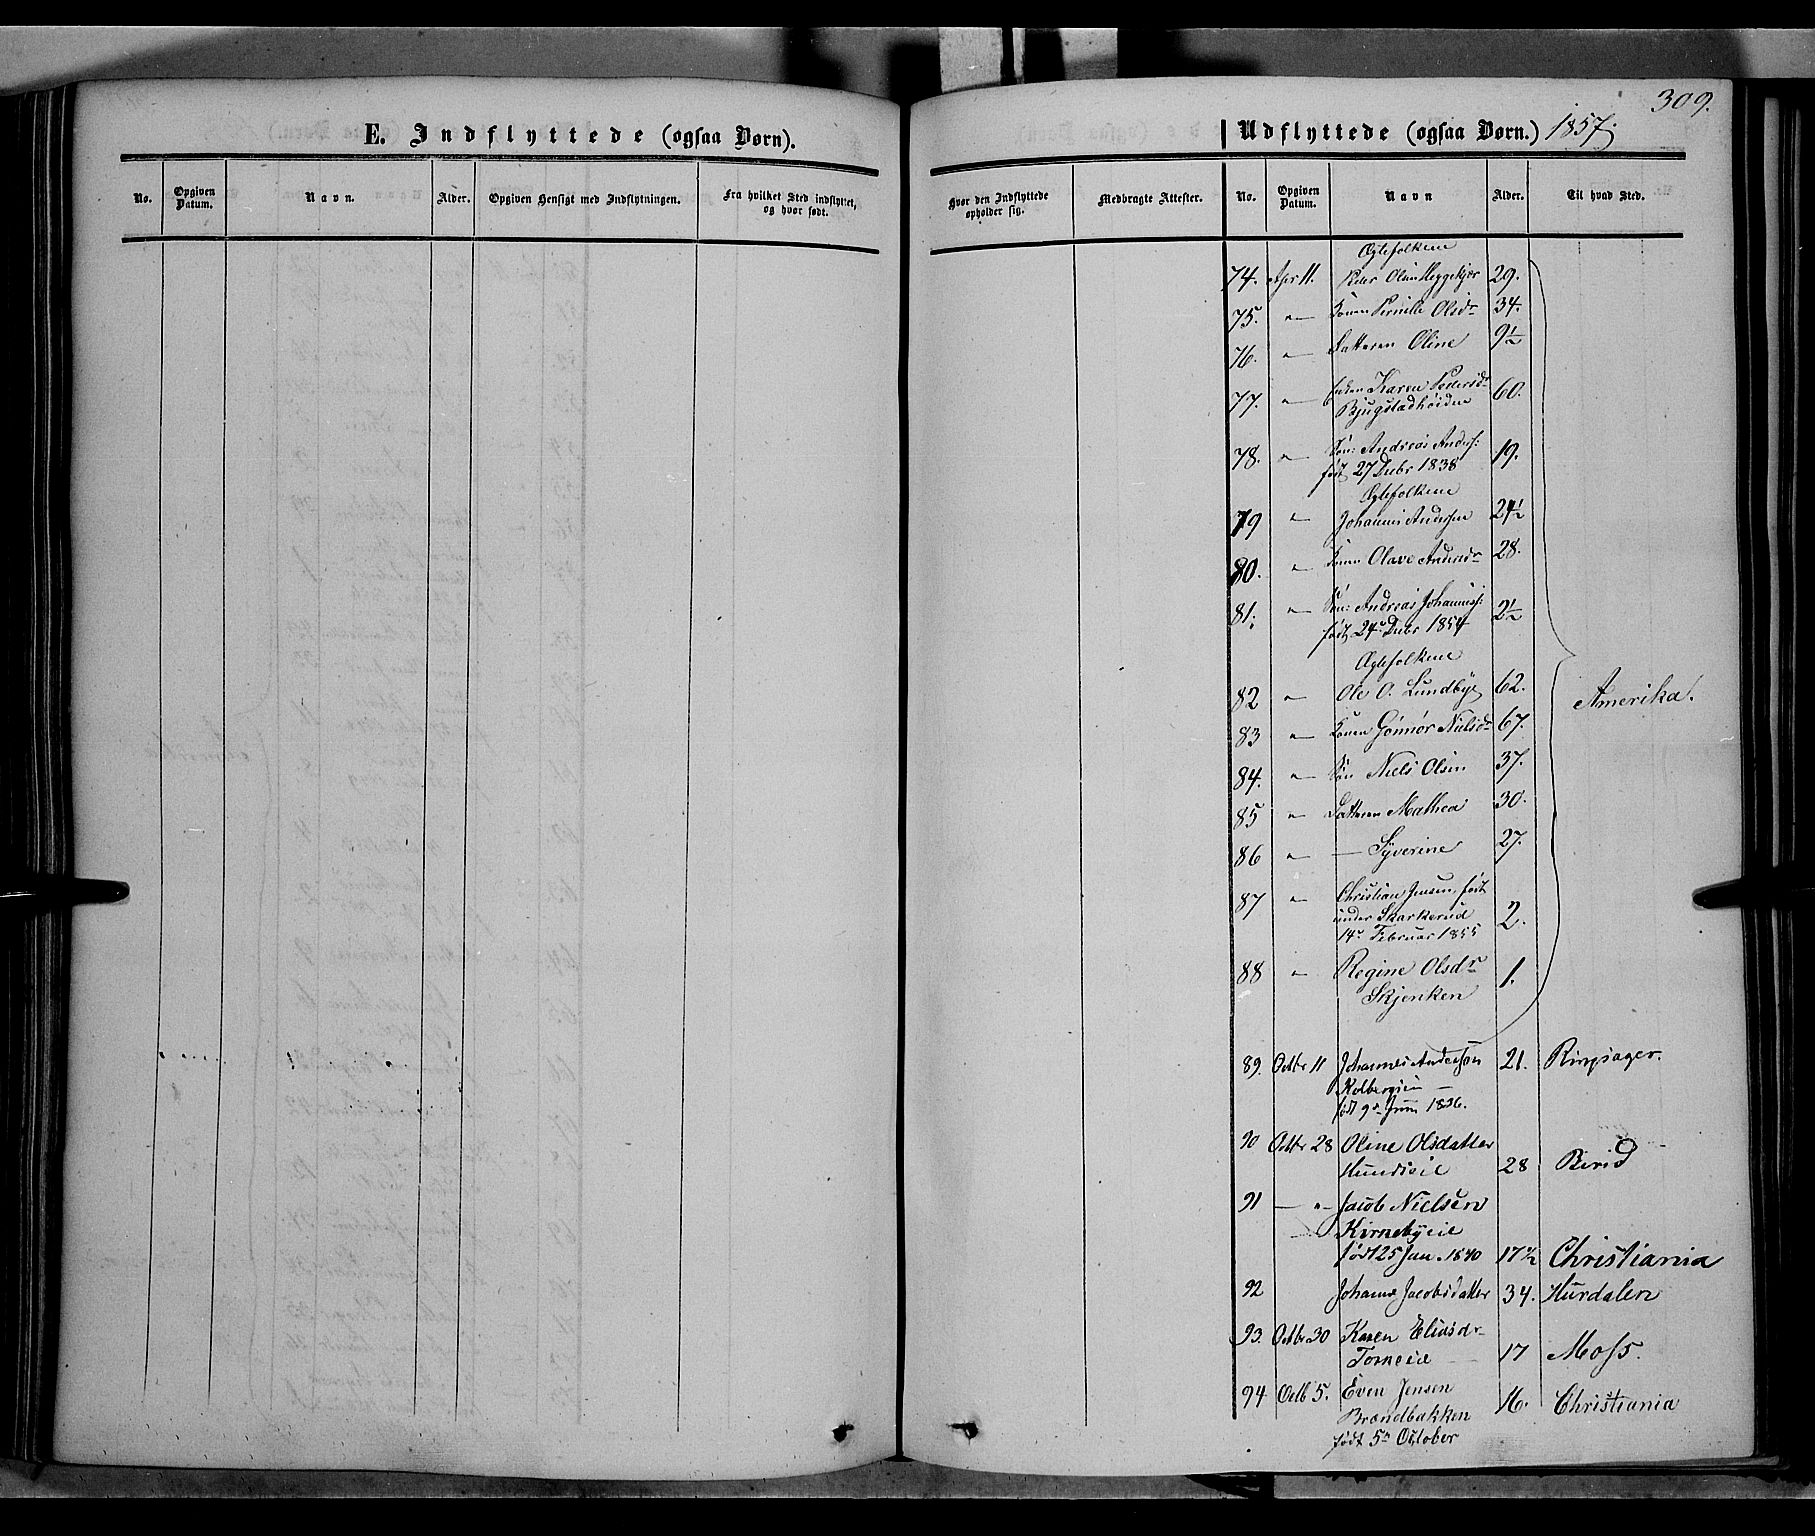 309.
E. Indflyttede (ogsaa Børn).
No. Opgiven Datum. Navn. Alder. Opgiven Hensigt med Indflytningen. Fra hvilket Sted indflyttet, og hvor født.
Hvor den Indflyttede opholder sig. Medbragte Attester.
Udflyttede (ogsaa Børn.) 1857.
No. Opgiven Datum. Navn Alder. Til hvad Sted.
Ægtefolkene
74. Apr 11. Peder Olsen Heggekjær 29.
75. " Konen Pernille Olsdr 34.
76. " Datteren Oline 9½
77. " Enken Karen Pedersdr 60.
Bjugstadhøiden
78. " Søn: Andreas Anders: 19.
født 27 Decbr 1838
Ægtefolkene
79 " Johannes Andersen 24½
80. " Konen Olave Andersdr 28.
81. " Søn: Andreas Johanness: 2½
født 24de Decbr 1854
Ægtefolkene
82 " Ole O. Lundbye 62.
Amerika.
83 " Konen Gønnør Nielsdr 67.
84. " Søn Niels Olsen 37.
85 " Datteren Mathea 30.
86 " — Syverine 27.
87 " Christian Jensen, født
under Skarkerud 2.
14de Februar 1855
88 " Regine Olsdr 1.
Skjenken
89. Octbr 11 Johannes Andersen 21. Ringsager.
Kolbergsien —
født 9de Juni 1836.
90 Octbr 28 Oline Olsdatter
Hundseie 28 Birid
91 — " Jacob Nielsen
Kirnebyeie
født 25 Jan. 1840 17½ Christiania
92 Johanne Jacobsdatter 34. Hurdalen
93. Octbr 30 Karen Eliasdr
Torneeie 17 Moss.
94 Octb 5. Even Jensen 16. Christiania
Brændbakken
født 5te October